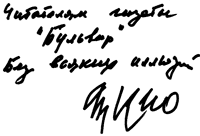 Читателям газеты
"Бульвар"
Без важных иллюзий